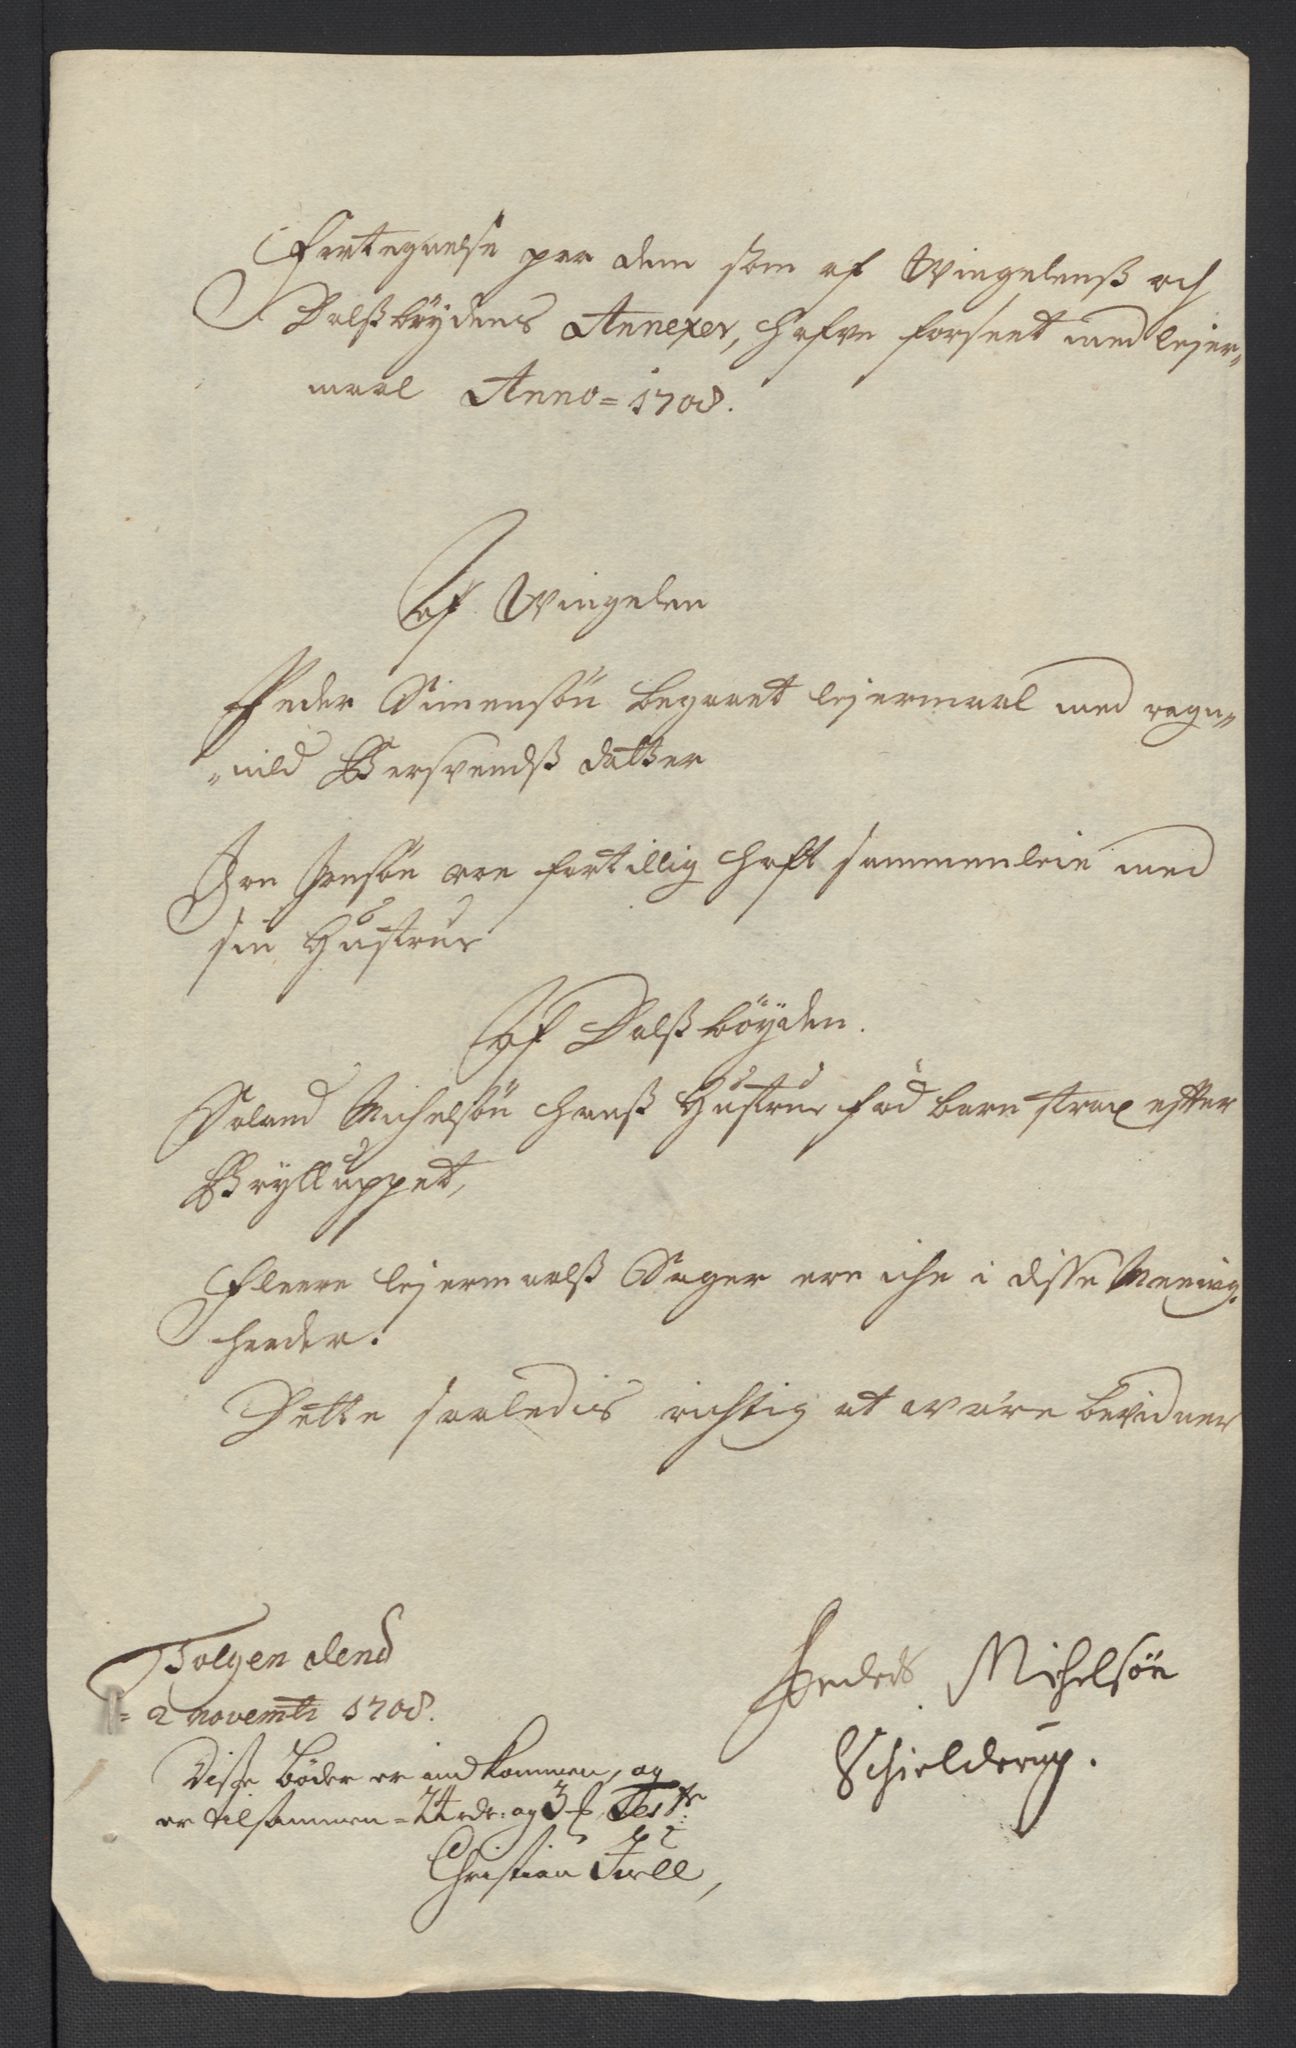 Fortegnelse paa dem som af Wingelenß och
Dalßbøydens Annexer, hafve forseet med lejer„
maal Anno = 1708.
Af Wingelen
Peder Simensøn begaaet lejermaal med ragn„
„nild Bersvendß datter
Jon Jonsøn ere fortillig hafft sammenleie med
sin Hustrue
Af Dalßbøyden.
Michelsøn hanß Hustrue fød barn strax effter
Brylluppet,
Fleere lejermaalß Sager ere iche i disse Meenig„
heeder.
Dette saaledis richtig at være bevidner
Tolgen dend
= 2 novemb: 1708.
Michelsøn
Schielderup.
Disse bøder er ind kommen, og
er tilsammen = 24 rdr: og 3 Test:
Christian